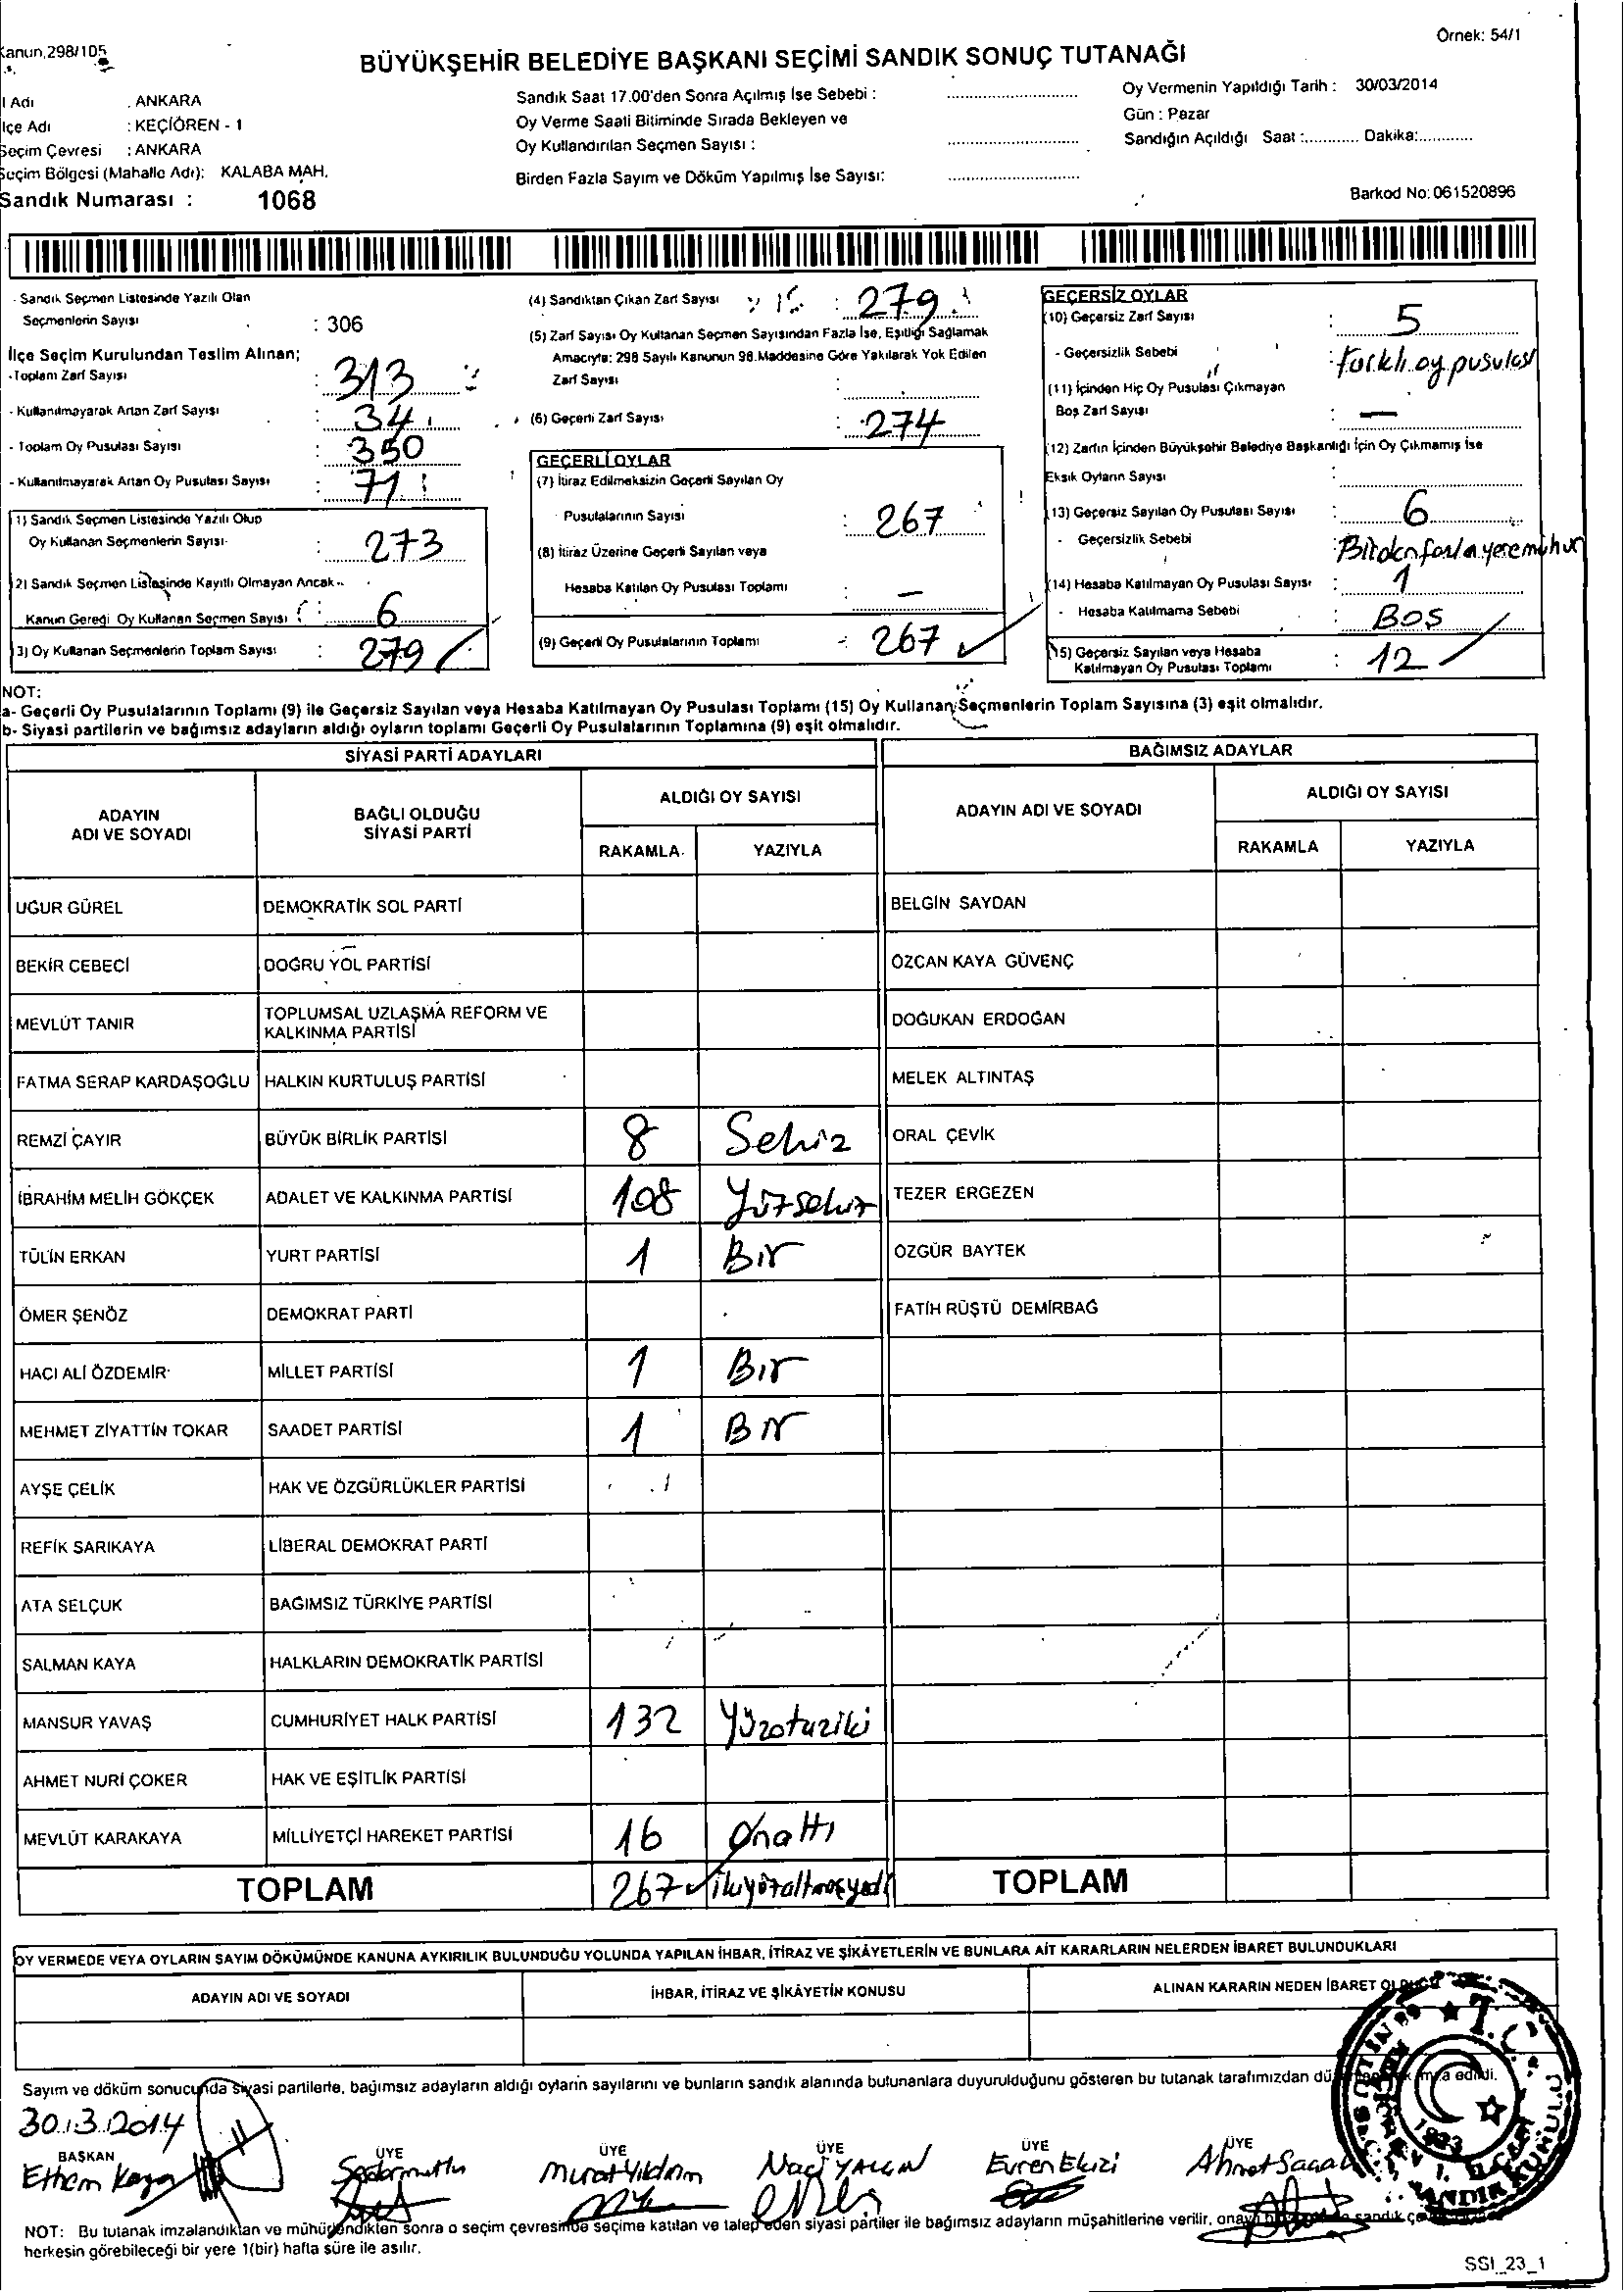 Kanun,298/105
Örnek: 54/1
BÜYÜKŞEHİR BELEDİYE BAŞKANI SEÇİMİ SANDIK SONUÇ TUTANAĞI
İl Adı : ANKARA
İlçe Adı : KEÇİÖREN - 1
Seçim Çevresi : ANKARA
Seçim Bölgesi (Mahalle Adı): KALABA MAH.
Sandık Numarası : 1068
Sandık Saat 17.00'den Sonra Açılmış İse Sebebi :
Oy Verme Saati Bitiminde Sırada Bekleyen ve
Oy Kullandırılan Seçmen Sayısı :
Birden Fazla Sayım ve Döküm Yapılmış İse Sayısı:
Oy Vermenin Yapıldığı Tarih : 30/03/2014
Gün : Pazar
Sandığın Açıldığı Saat :............ Dakika:............
Barkod No: 061520896
- Sandık Seçmen Listesinde Yazılı Olan
Seçmenlerin Sayısı : 306
İlçe Seçim Kurulundan Teslim Alınan;
-Toplam Zarf Sayısı : 313
- Kullanılmayarak Artan Zarf Sayısı : 34
- Toplam Oy Pusulası Sayısı : 350
- Kullanılmayarak Artan Oy Pusulası Sayısı : 71
(1) Sandık Seçmen Listesinde Yazılı Olup
Oy Kullanan Seçmenlerin Sayısı : 273
(2) Sandık Seçmen Listesinde Kayıtlı Olmayan Ancak
Kanun Gereği Oy Kullanan Seçmen Sayısı : 6
(3) Oy Kullanan Seçmenlerin Toplam Sayısı : 279
(4) Sandıktan Çıkan Zarf Sayısı : 279
(5) Zarf Sayısı Oy Kullanan Seçmen Sayısından Fazla İse, Eşitliği Sağlamak
Amacıyla; 298 Sayılı Kanunun 98.Maddesine Göre Yakılarak Yok Edilen
Zarf Sayısı :
(6) Geçerli Zarf Sayısı : 274
GEÇERLİ OYLAR
(7) İtiraz Edilmeksizin Geçerli Sayılan Oy
Pusulalarının Sayısı : 267
(8) İtiraz Üzerine Geçerli Sayılan veya
Hesaba Katılan Oy Pusulası Toplamı : —
(9) Geçerli Oy Pusulalarının Toplamı : 267 ✓
GEÇERSİZ OYLAR
(10) Geçersiz Zarf Sayısı : 5
- Geçersizlik Sebebi : farklı oy pusulası
(11) İçinden Hiç Oy Pusulası Çıkmayan
Boş Zarf Sayısı : —
(12) Zarfın İçinden Büyükşehir Belediye Başkanlığı İçin Oy Çıkmamış İse
Eksik Oyların Sayısı :
(13) Geçersiz Sayılan Oy Pusulası Sayısı : 6
- Geçersizlik Sebebi : Birden fazla yere mühür
(14) Hesaba Katılmayan Oy Pusulası Sayısı : 1
- Hesaba Katılmama Sebebi : BOŞ
(15) Geçersiz Sayılan veya Hesaba
Katılmayan Oy Pusulası Toplamı : 12
NOT:
a- Geçerli Oy Pusulalarının Toplamı (9) ile Geçersiz Sayılan veya Hesaba Katılmayan Oy Pusulası Toplamı (15) Oy Kullanan Seçmenlerin Toplam Sayısına (3) eşit olmalıdır.
b- Siyasi partilerin ve bağımsız adayların aldığı oyların toplamı Geçerli Oy Pusulalarının Toplamına (9) eşit olmalıdır.
SİYASİ PARTİ ADAYLARI
BAĞIMSIZ ADAYLAR
ADAYIN
ADI VE SOYADI
BAĞLI OLDUĞU
SİYASİ PARTİ
ALDIĞI OY SAYISI
RAKAMLA YAZIYLA
ADAYIN ADI VE SOYADI
ALDIĞI OY SAYISI
RAKAMLA YAZIYLA
UĞUR GÜREL DEMOKRATİK SOL PARTİ BELGİN SAYDAN
BEKİR CEBECİ DOĞRU YOL PARTİSİ ÖZCAN KAYA GÜVENÇ
MEVLÜT TANIR TOPLUMSAL UZLAŞMA REFORM VE
KALKINMA PARTİSİ DOĞUKAN ERDOĞAN
FATMA SERAP KARDAŞOĞLU HALKIN KURTULUŞ PARTİSİ MELEK ALTINTAŞ
REMZİ ÇAYIR BÜYÜK BİRLİK PARTİSİ 8 Sekiz ORAL ÇEVİK
İBRAHİM MELİH GÖKÇEK ADALET VE KALKINMA PARTİSİ 108 Yüzsekiz TEZER ERGEZEN
TÜLİN ERKAN YURT PARTİSİ 1 Bir ÖZGÜR BAYTEK
ÖMER ŞENÖZ DEMOKRAT PARTİ FATİH RÜŞTÜ DEMİRBAĞ
HACI ALİ ÖZDEMİR MİLLET PARTİSİ 1 Bir
MEHMET ZİYATTİN TOKAR SAADET PARTİSİ 1 Bir
AYŞE ÇELİK HAK VE ÖZGÜRLÜKLER PARTİSİ
REFİK SARIKAYA LİBERAL DEMOKRAT PARTİ
ATA SELÇUK BAĞIMSIZ TÜRKİYE PARTİSİ
SALMAN KAYA HALKLARIN DEMOKRATİK PARTİSİ
MANSUR YAVAŞ CUMHURİYET HALK PARTİSİ 132 Yüzotuziki
AHMET NURİ ÇOKER HAK VE EŞİTLİK PARTİSİ
MEVLÜT KARAKAYA MİLLİYETÇİ HAREKET PARTİSİ 16 Onaltı
TOPLAM 267 ✓ ikiyüzaltmışyedi TOPLAM
OY VERMEDE VEYA OYLARIN SAYIM DÖKÜMÜNDE KANUNA AYKIRILIK BULUNDUĞU YOLUNDA YAPILAN İHBAR, İTİRAZ VE ŞİKÂYETLERİN VE BUNLARA AİT KARARLARIN NELERDEN İBARET BULUNDUKLARI
ADAYIN ADI VE SOYADI İHBAR, İTİRAZ VE ŞİKÂYETİN KONUSU ALINAN KARARIN NEDEN İBARET OLDUĞU
Sayım ve döküm sonucunda siyasi partilerle, bağımsız adayların aldığı oyların sayılarını ve bunların sandık alanında bulunanlara duyurulduğunu gösteren bu tutanak tarafımızdan imza edildi.
30.3.2014
BAŞKAN ÜYE ÜYE ÜYE ÜYE ÜYE
Ethem Kaya Murat Yıldırım Naci YALÇIN Evren Ekizi Ahmet
T.C. 1923
NOT: Bu tutanak imzalandıktan ve mühürlendikten sonra o seçim çevresinde seçime katılan ve talep eden siyasi partiler ile bağımsız adayların müşahitlerine verilir, sandık
herkesin görebileceği bir yere 1(bir) hafta süre ile asılır.
SSI_23_1